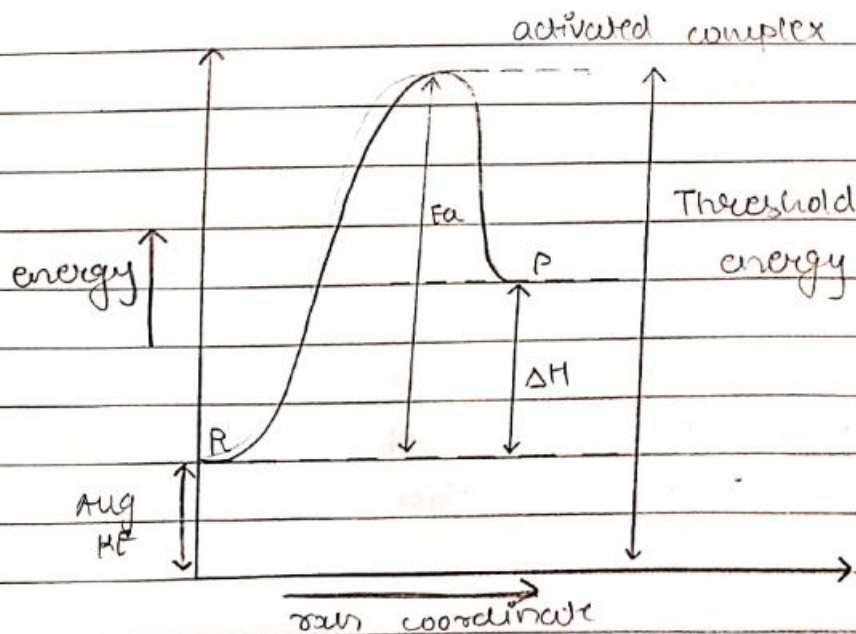 activated complex
Threshold
energy
Ea
energy
P
ΔH
R
Avg
KE
rxn coordinate